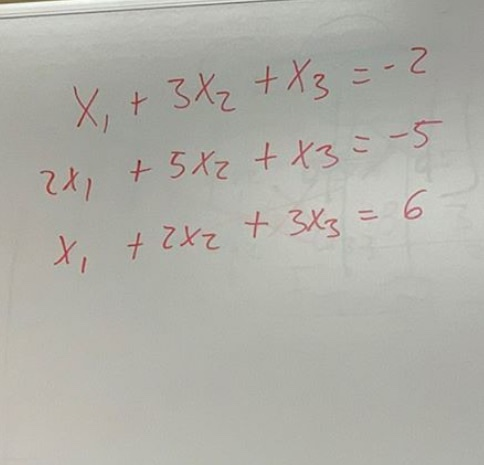 x₁ + 3x₂ + x₃ = -2
2x₁ + 5x₂ + x₃ = -5
x₁ + 2x₂ + 3x₃ = 6